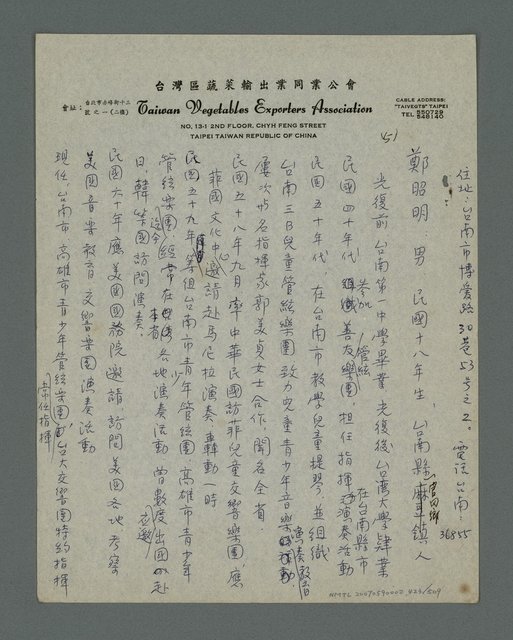 台灣區蔬菜輸出業同業公會
會址：台北市赤峰街十三號之一(二樓)
Taiwan Vegetables Exporters Association
NO. 13-1 2ND FLOOR, CHYH FENG STREET
TAIPEI TAIWAN REPUBLIC OF CHINA
CABLE ADDRESS:
"TAIVEGTS" TAIPEI
TEL 550729
548140
住址：台南市博愛路30巷53号之2。電話台南：36855
鄭昭明 男 民國十八年生，台南縣官田鄉人
光復前 台南第一中學畢業 光復後 台灣大學肄業
民國四十年代 參加組織善友管絃樂團，担任指揮 在台南縣市演奏活動
民國五十年代，在台南市教學兒童提琴，並組織
台南三B兒童管絃樂團 致力兒童青少年音樂演奏教育
屢次聘名指揮家郭美貞女士合作，聞名全省
民國五十八年九月率中華民國訪菲兒童交響樂團，應
菲國文化中心邀請赴馬尼拉演奏，轟動一時
民國五十九年籌組台南市青少年管絃團，高雄市青少年
管絃樂團，迄今經常在本省各地演奏活動 曾數度出國应邀赴
日、韓等國訪問演奏。
民國六十年應美國國務院邀請訪問美國各地考察
美國音樂教育 交響樂團演奏活動
現任：台南市 高雄市青少年管絃樂團常任指揮 台大交響團特約指揮
NMTL 20090590002 423/509